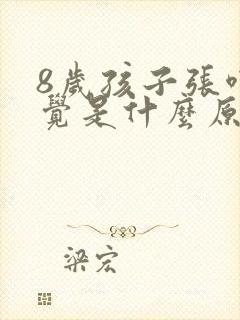 8歲孩子張
覺是什麼原
梁宏